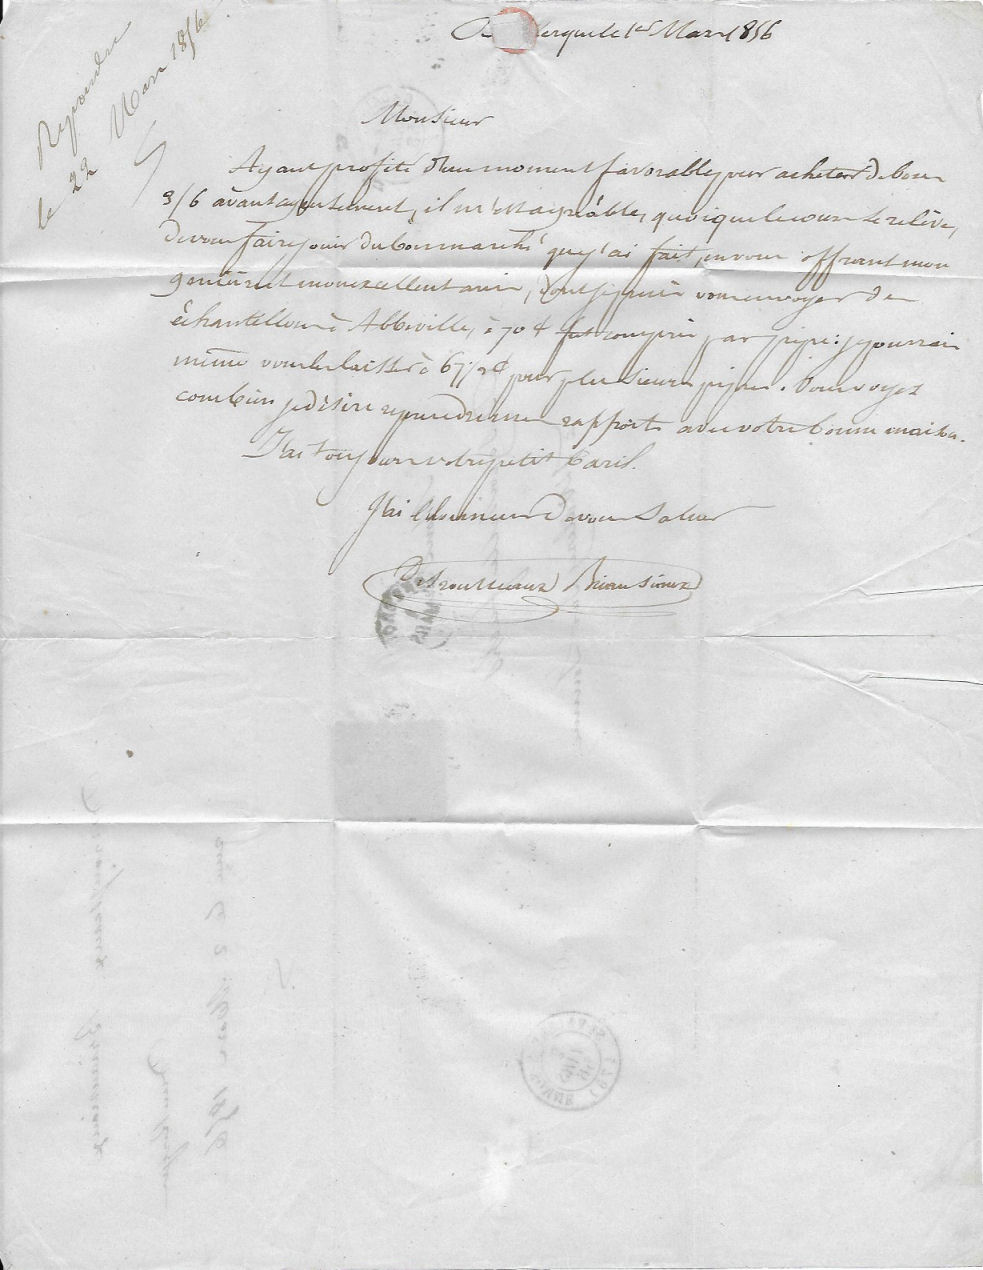 Répondre
le 22 Mars 1856
le 1er Mars 1856
Monsieur
Ayant profité d'un moment favorable pour acheter de bons
3/6 avantageusement, il m'est agréable, quoique le cours se relève,
de vous faire jouir du bon marché que j'ai fait, en vous offrant mon
genièvre et mon excellent anis, dont je puis vous envoyer des
échantillons à Abbeville, à 70 fut compris par pipe; je pourrais
même vous les laisser à 67 1/2 pour plusieurs pipes. Vous voyez
combien je désire reprendre mes rapports avec votre bonne maison.
J'ai toujours votre petit baril.
J'ai l'honneur de vous saluer